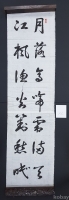 月落烏啼霜滿天
江楓漁火對愁眠
kobay